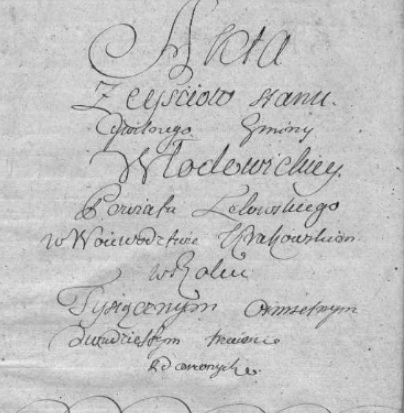 Akta
Zeyściow stanu.
Cywilnego Gminy
Włodowickiey.
Powiatu Lelowskiego
w Woiewodztwie Krakowskim
w Roku
Tysiącznym osmsetnym
dwudziestym trzecim
zdarzonych